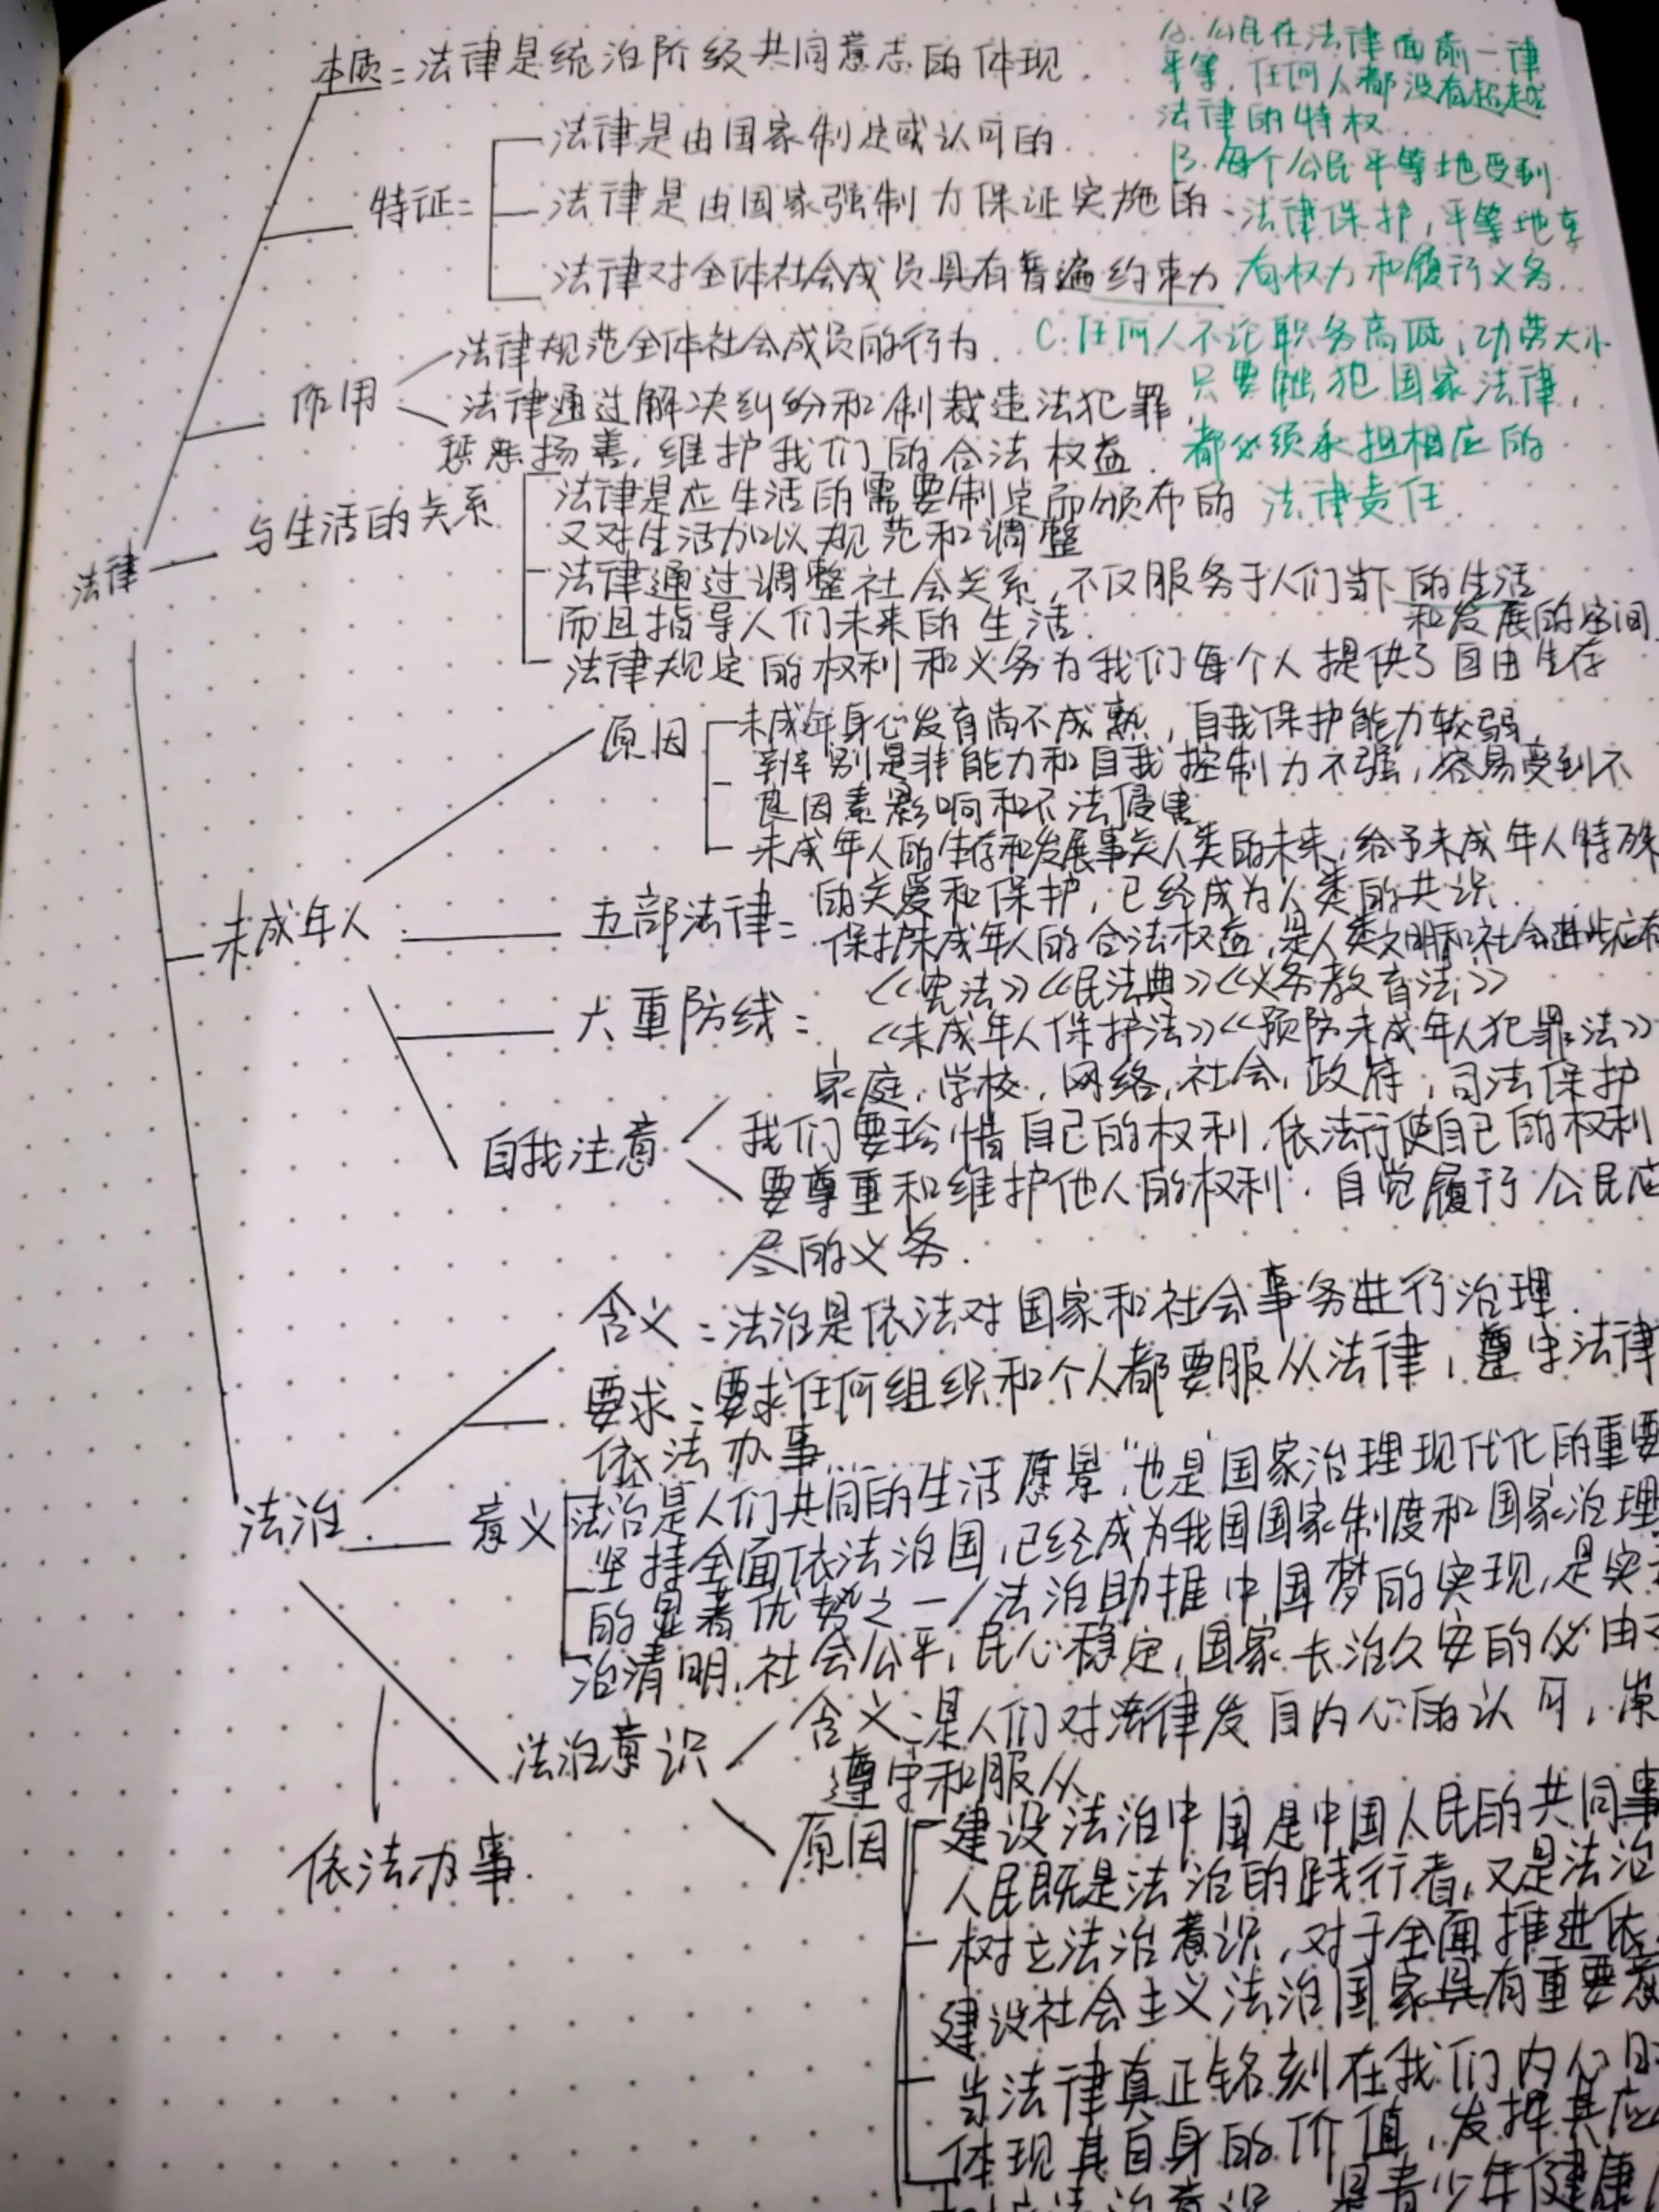 本质：法律是统治阶级共同意志的体现.
A. 公民在法律面前一律
平等，任何人都没有超越
法律的特权
特征：
法律是由国家制定或认可的
法律是由国家强制力保证实施的
法律对全体社会成员具有普遍约束力
B. 每个公民平等地受到
法律保护，平等地享
有权力和履行义务.
作用
法律规范全体社会成员的行为.
法律通过解决纠纷和制裁违法犯罪
惩恶扬善，维护我们的合法权益.
C. 任何人不论职务高低，功劳大小
只要触犯国家法律，
都必须承担相应的
法律责任.
法律
与生活的关系
法律是应生活的需要制定而颁布的
又对生活加以规范和调整
法律通过调整社会关系，不仅服务于人们当下的生活
而且指导人们未来的生活.
法律规定的权利和义务为我们每个人提供了自由生存
和发展的空间
未成年人
原因
未成年身心发育尚不成熟，自我保护能力较弱
辨别是非能力和自我控制力不强，容易受到不
良因素影响和不法侵害
未成年人的生存和发展事关人类的未来，给予未成年人特殊
的关爱和保护，已经成为人类的共识.
保护未成年人的合法权益，是人类文明和社会进步应有
五部法律：
《宪法》《民法典》《义务教育法》
《未成年人保护法》《预防未成年人犯罪法》
六重防线：
家庭，学校，网络，社会，政府，司法保护
自我注意
我们要珍惜自己的权利，依法行使自己的权利
要尊重和维护他人的权利，自觉履行公民应
尽的义务.
法治
含义：法治是依法对国家和社会事务进行治理.
要求：要求任何组织和个人都要服从法律，遵守法律
依法办事
意义
法治是人们共同的生活愿景，也是国家治理现代化的重要
坚持全面依法治国，已经成为我国国家制度和国家治理
的显著优势之一/法治助推中国梦的实现，是实
治清明，社会公平，民心稳定，国家长治久安的必由
法治意识
含义：是人们对法律发自内心的认可，崇
遵守和服从
原因
建设法治中国是中国人民的共同事
人民既是法治的践行者，又是法治
树立法治意识，对于全面推进依
建设社会主义法治国家具有重要意
当法律真正铭刻在我们内心时
体现其自身的价值，发挥其应
法治意识，是青少年健康
依法办事.